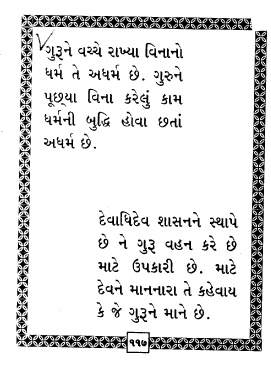 ગુરૂને વચ્ચે રાખ્યા વિનાનો
ધર્મ તે અધર્મ છે. ગુરુને
પૂછ્યા વિના કરેલું કામ
ધર્મની બુદ્ધિ હોવા છતાં
અધર્મ છે.
દેવાધિદેવ શાસનને સ્થાપે
છે ને ગુરૂ વહન કરે છે
માટે ઉપકારી છે. માટે
દેવને માનનારા તે કહેવાય
કે જે ગુરૂને માને છે.
૧૧૭